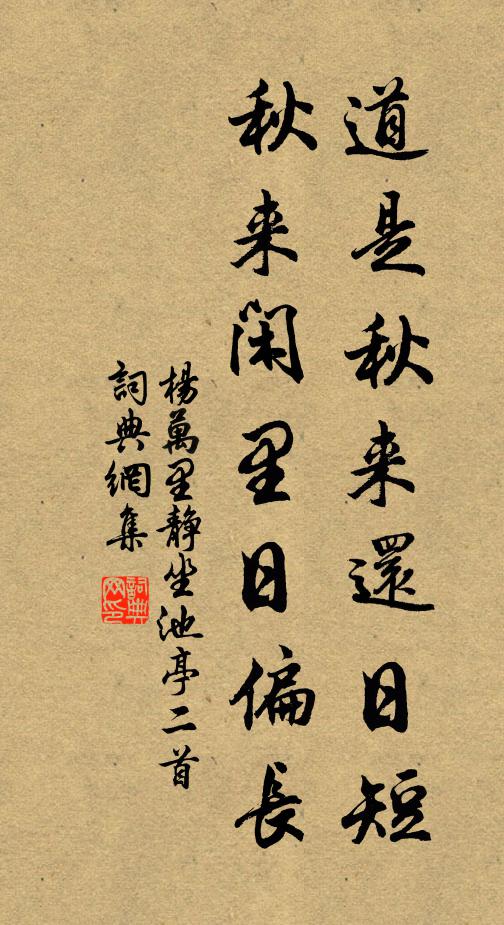 道是秋来還日短
秋来閑里日偏長
楊萬里靜坐池亭二首
詞典網集
詞典网印